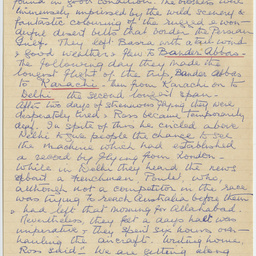 found in good condition. The brothers were
immensely impressed by the wild scenery &
fantastic colouring of the rugged & now-
awful desert hills that border the Persian
Gulf. They left Basra with a tail wind
& good weather & flew to Bander Abbas.
The following day they made the
longest flight of the trip, Bander Abbas
to Karachi. Then from Karachi on to
Delhi the second longest span.
After two days of strenuous flying they were
desperately tired & Ross became temporarily
deaf. In spite of this he circled above
Delhi to give people the chance to see
the machine which had established
a record by flying from London.
While in Delhi they heard the news
about a Frenchman Poulet, who
although not a competitor in the race
was trying to reach Australia before them
& had left that morning for Allahabad.
Nevertheless they felt a day's halt was
imperative & they spent six hours over-
hauling the aircraft. Writing home,
Ross said "We are getting along